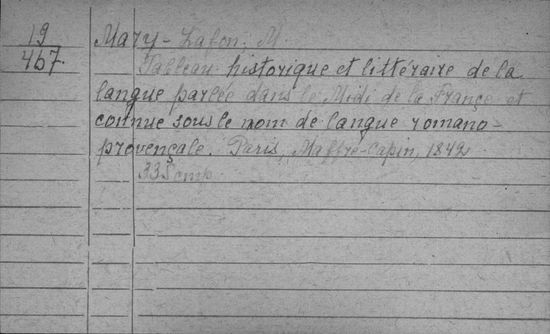 19
467.
Mary-Lafon, M.
Tableau historique et littéraire de la
langue parlée dans le Midi de la France et
connue sous le nom de langue romano-
provençale. Paris, Maffre-Capin, 1842
335 стр.